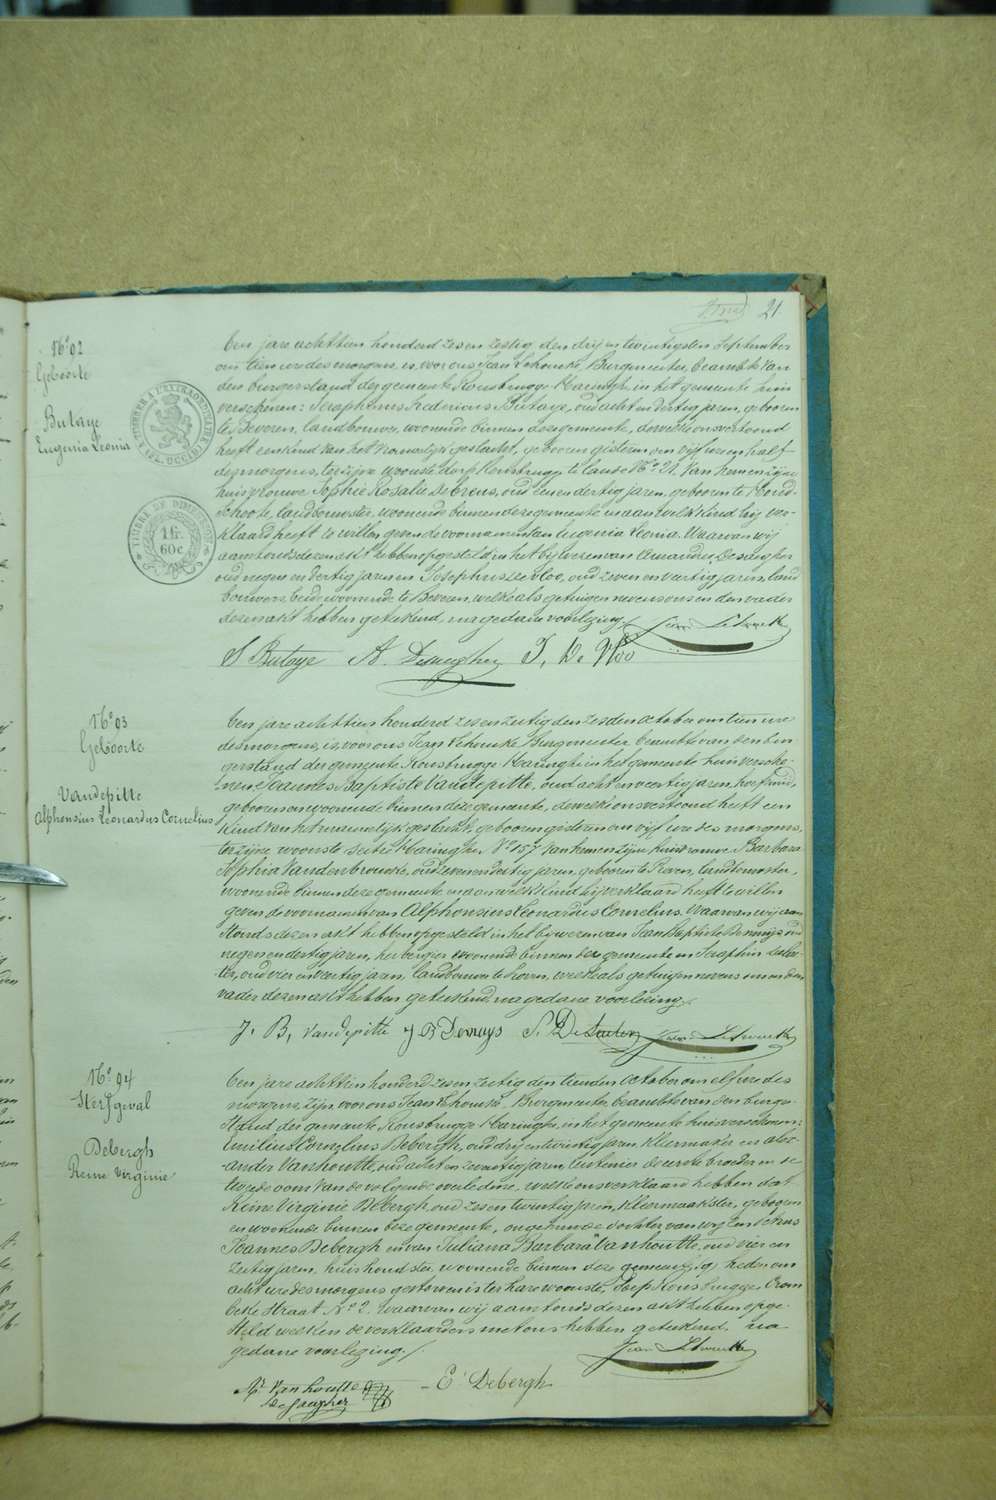 21
N° 92
Geboorte
Butaye
Eugenia Leonia
TIMBRE DE DIMENSION
1 fr.
60 c
Een jare achttien honderd zes en zestig den drij en twintigsten September
om tien ure des morgens, is voor ons Jean Burgmeester, beambte van
den burgerstand der gemeente Rousbrugge-Haringhe in het gemeente huis
verschenen: Seraphinus Fredericus Butaye, oud acht en dertig jaren, geboren
te Beveren, landbouwer, woonende binnen deze gemeente, dewelke ons vertoond
heeft een kind van het vrouwelijk geslacht, geboren gisteren om vijf ure en half
des morgens, ter zijne woonste dorp Rousbrugge N° 21 van hem en zijne
huisvrouwe Sophie Rosalie oud een en dertig jaren, geboren te Nord-
Schoote, landbouwster, woonende binnen deze gemeente en aan welk kind hij ver-
klaard heeft te willen geven de voornamen van Eugenia Leonia. Waarvan wij
aanstonds dezen akt hebben opgesteld in het bijwezen van Amandus
oud negen en dertig jaren en Josephus De Vloo, oud zeven en veertig jaren, land
bouwers, beide woonende te Beveren, welke als getuigen nevens ons en den vader
dezen akt hebben geteekend, na gedane voorlezing
S Butaye A. J. De Vloo
N° 93
Geboorte
Vandepitte
Alphonsius Leonardus Cornelius
Een jare achttien honderd zes en zestig den zesden October om tien ure
des morgens, is voor ons Jean Burgmeester beambte van den bur-
gerstand der gemeente Rousbrugge-Haringhe in het gemeente huis versche-
nen: Joannes Baptiste Vandepitte, oud acht en veertig jaren,
geboren en woonende binnen deze gemeente, dewelke ons vertoond heeft een
kind van het mannelijk geslacht, geboren gisteren om vijf ure des morgens,
ter zijne woonste Haringhe N° 157 van hem en zijne huisvrouwe Barbara
Sophia Vandenbroucke, oud zeven en dertig jaren, geboren te landbouwster,
woonende binnen deze gemeente en aan welk kind hij verklaard heeft te willen
geven de voornamen van Alphonsius Leonardus Cornelius. Waarvan wij aan
stonds dezen akt hebben opgesteld in het bijwezen van Jean Baptiste oud
negen en dertig jaren, herbergier woonende binnen deze gemeente en Seraphin
oud vier en veertig jaren, landbouwer te welke als getuigen nevens ons en den
vader dezen akt hebben geteekend, na gedane voorlezing
J. B. Vandepitte J B S.
N° 94
Sterfgeval
Debergh
Reine Virginie
Een jare achttien honderd zes en zestig den tienden October om elf ure des
morgens, zijn voor ons Jean Burgmeester beambte van den burger-
stand der gemeente Rousbrugge-Haringhe, in het gemeente huis verschenen:
Emilius Cornelius Debergh, oud drij en twintig jaren, kleermaker en alex-
ander Vanhoutte, oud acht en jaren de eerste broeder en de
tweede oom van de volgende overledene, welke ons verklaard hebben dat
Reine Virginie Debergh, oud zes en twintig jaren, kleermaakster, geboren
en woonende binnen deze gemeente, ongehuwde dochter van wijlen
Joannes Debergh en van Juliana Barbara Vanhoutte, oud vier en
zestig jaren, huishoudster, woonende binnen deze gemeente, heden om
acht ure des morgens gestorven is ter hare woonste, dorp Rousbrugge, Crom
beke straat N° 2. Waarvan wij aanstonds dezen akt hebben opge-
steld welken de verklaarders met ons hebben geteekend, na
gedane voorlezing.
Vanhoutte
E Debergh